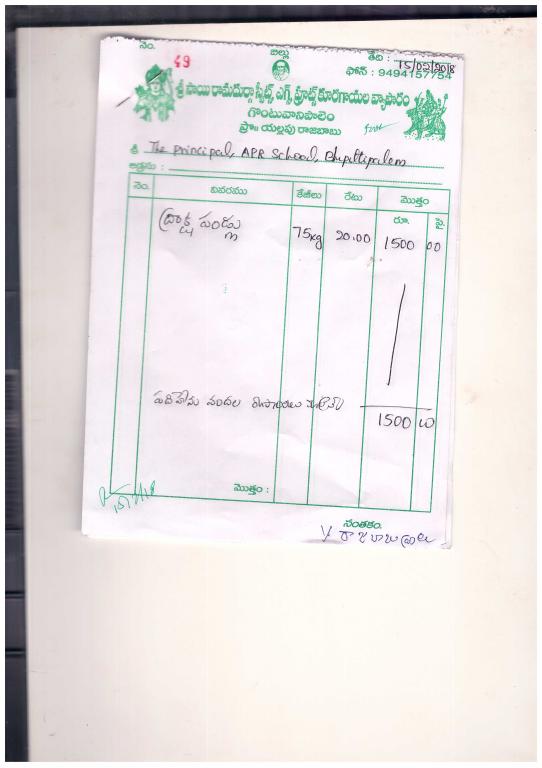 నెం. 49 బిల్లు తేది : 15/02/2018
ఫోన్ : 9494157754
శ్రీ సాయి రామదుర్గా స్వీట్స్, ఎగ్స్, ఫ్రూట్స్ కూరగాయల వ్యాపారం
గొంటువానిపాలెం
ప్రొ॥ యల్లపు రాజబాబు
శ్రీ The Principal, APR School, Bhupatipalem
అడ్రసు :
నెం. వివరము కేజీలు రేటు మొత్తం
రూ. పై.
ద్రాక్ష పండ్లు 75kg 20.00 1500 00
పదిహేను వందల రూపాయలు మాత్రమే
1500 00
మొత్తం :
15/2/18
సంతకం.
Y రాజబాబు